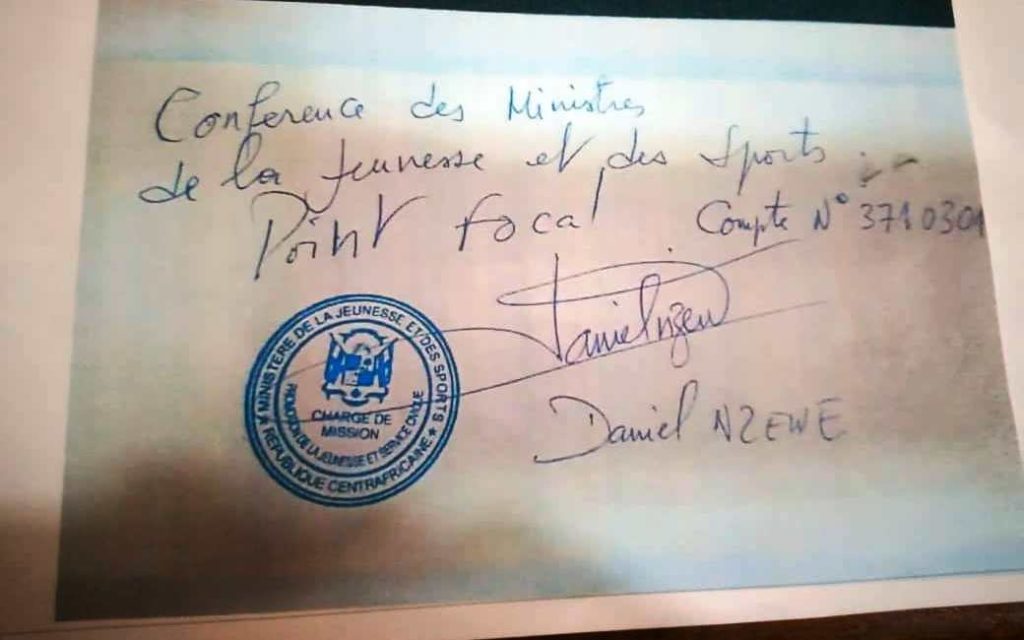 Conference des Ministres
de la Jeunesse et des Sports
Point focal Compte N° 3710301
Daniel Nzew
MINISTÈRE DE LA JEUNESSE ET DES SPORTS
PROMOTION DE LA JEUNESSE ET SERVICE CIVIQUE
CHARGE DE
MISSION
★ RÉPUBLIQUE CENTRAFRICAINE ★
Daniel NZEWE